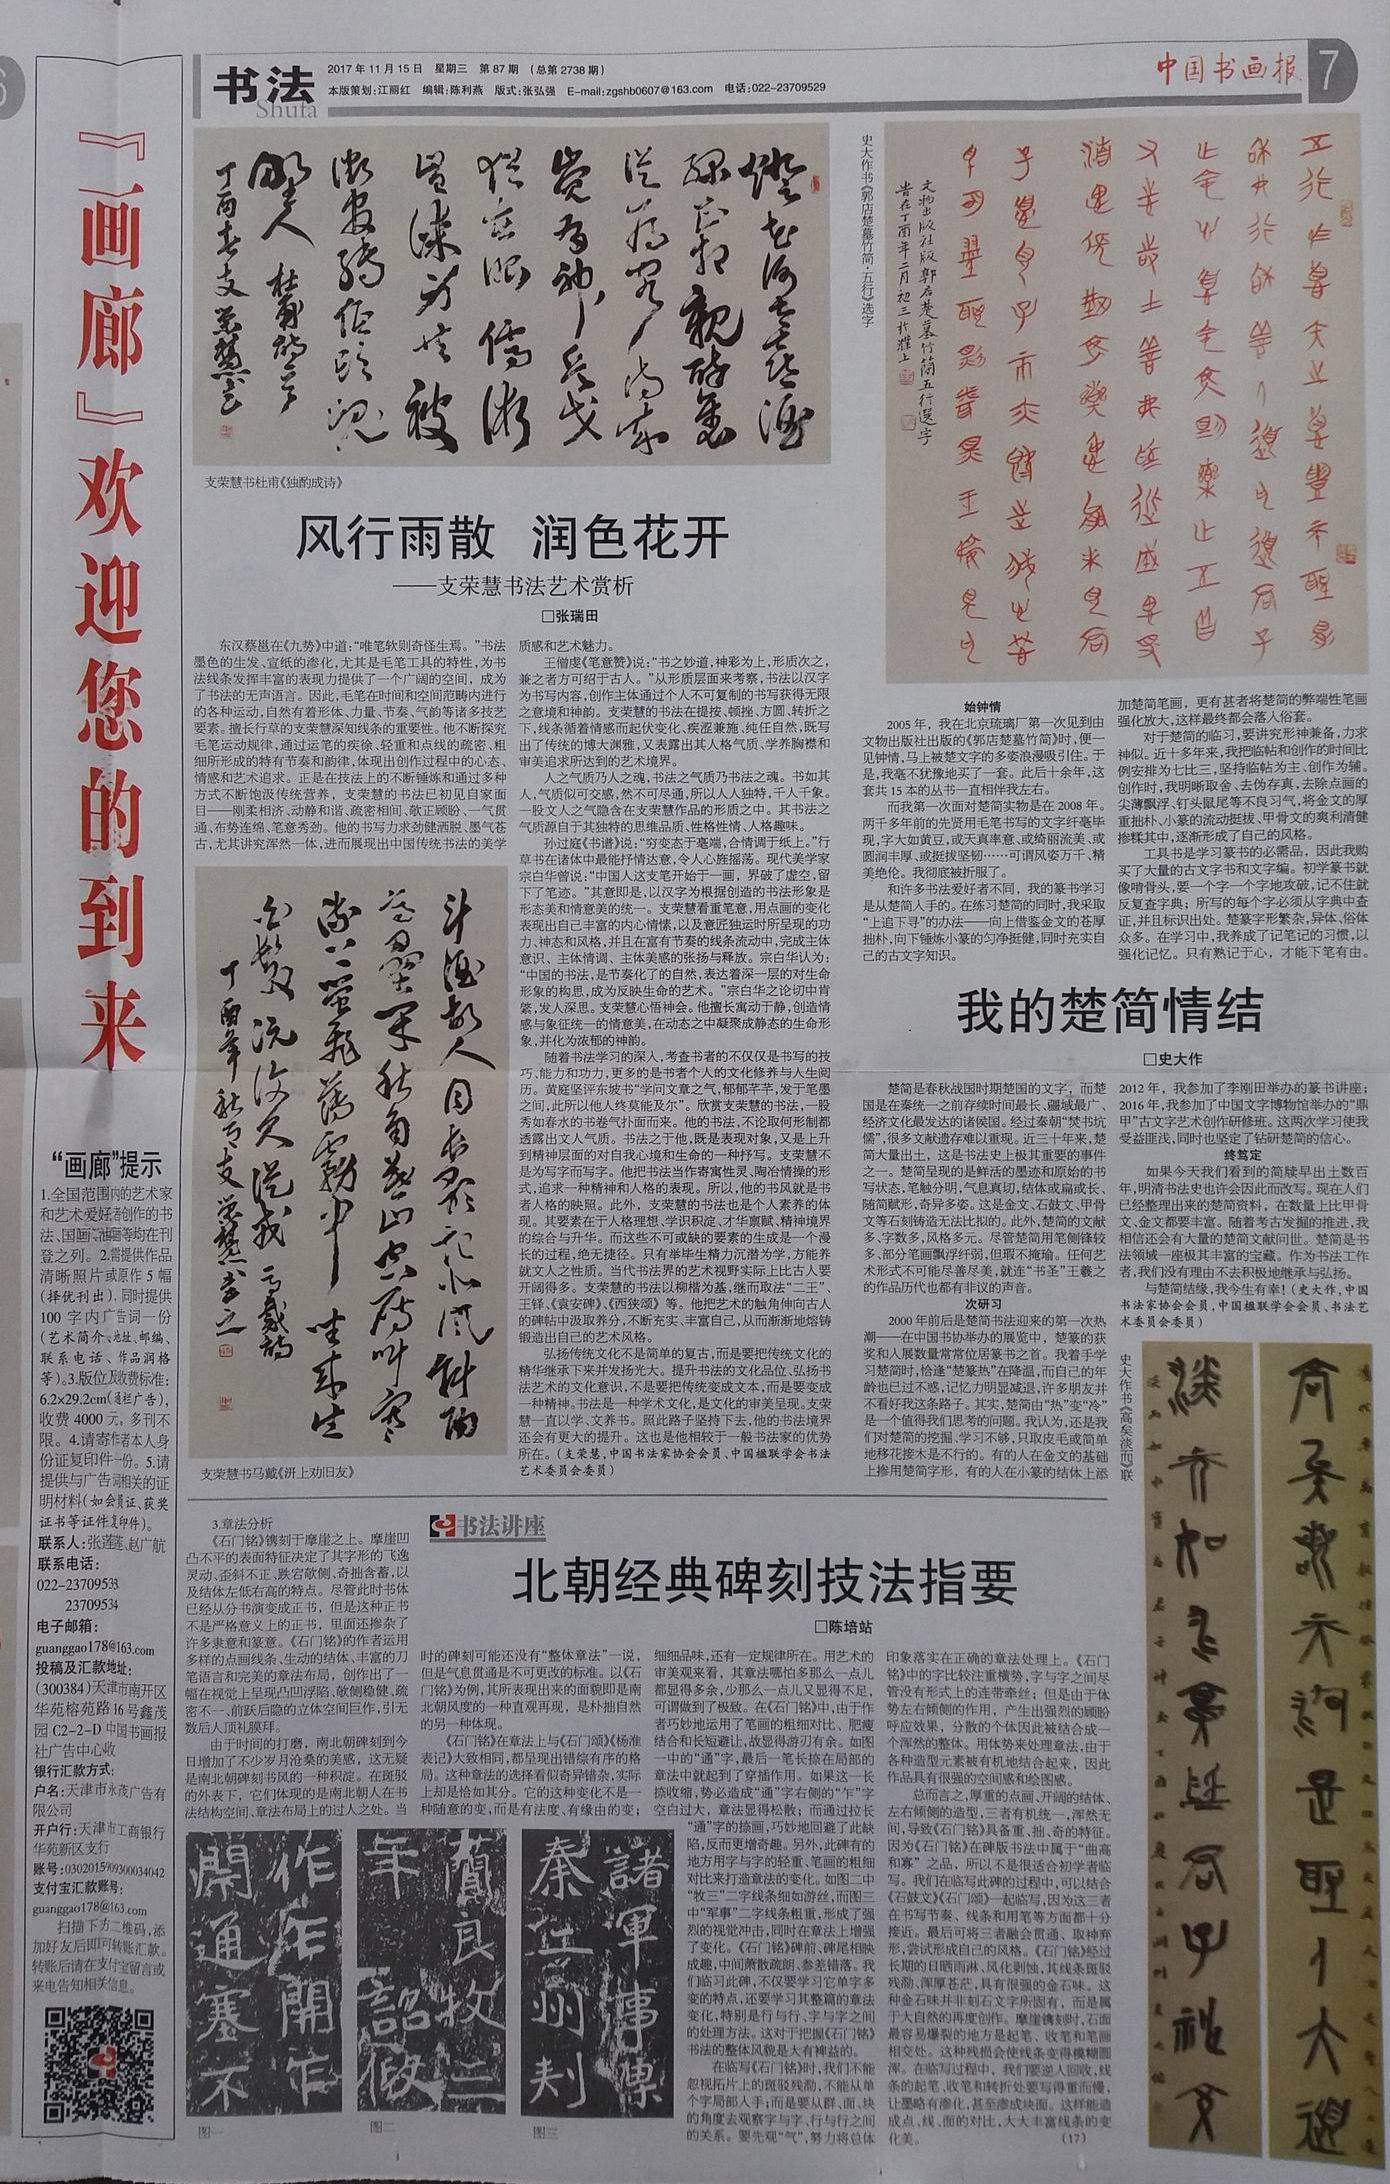 书法
Shufa
2017年11月15日 星期三 第87期 (总第2738期)
本版策划:江丽红 编辑:陈利燕 版式:张弘强 E-mail:zgshb0607@163.com 电话:022-23709529
中国书画报
7
『画廊』欢迎您的到来
“画廊”提示
1.全国范围内的艺术家
和艺术爱好者创作的书
法、国画、油画等均在刊
登之列。2.需提供作品
清晰照片或原作5幅
(择优刊出),同时提供
100字内广告词一份
(艺术简介、地址、邮编、
联系电话、作品润格
等)。3.版位及收费标准:
6.2×29.2cm(通栏广告),
收费4000元,多刊不
限。4.请寄作者本人身
份证复印件一份。5.请
提供与广告词相关的证
明材料(如会员证、获奖
证书等证件复印件)。
联系人:张莲莲、赵广航
联系电话:
022-23709533
23709534
电子邮箱:
guanggao178@163.com
投稿及汇款地址:
(300384)天津市南开区
华苑榕苑路16号鑫茂
园C2-2-D中国书画报
社广告中心收
银行汇款方式:
户名:天津市永茂广告有
限公司
开户行:天津市工商银行
华苑新区支行
账号:0302015909300034042
支付宝汇款账号:
guanggao178@163.com
扫描下方二维码,添
加好友后即可转账汇款。
转账后请在支付宝留言或
来电告知相关信息。
支荣慧书杜甫《独酌成诗》
风行雨散 润色花开
——支荣慧书法艺术赏析
□张瑞田
东汉蔡邕在《九势》中道:“唯笔软则奇怪生焉。”书法
墨色的生发、宣纸的渗化,尤其是毛笔工具的特性,为书
法线条发挥丰富的表现力提供了一个广阔的空间,成为
了书法的无声语言。因此,毛笔在时间和空间范畴内进行
的各种运动,自然有着形体、力量、节奏、气韵等诸多技艺
要素。擅长行草的支荣慧深知线条的重要性。他不断探究
毛笔运动规律,通过运笔的疾徐、轻重和点线的疏密、粗
细所形成的特有节奏和韵律,体现出创作过程中的心态、
情感和艺术追求。正是在技法上的不断锤炼和通过多种
方式不断饱汲传统营养,支荣慧的书法已初见自家面
目——刚柔相济、动静和谐、疏密相间、欹正顾盼、一气贯
通、布势连绵、笔意秀劲。他的书写力求劲健洒脱、墨气苍
古,尤其讲究浑然一体,进而展现出中国传统书法的美学
质感和艺术魅力。
王僧虔《笔意赞》说:“书之妙道,神彩为上,形质次之,
兼之者方可绍于古人。”从形质层面来考察,书法以汉字
为书写内容,创作主体通过个人不可复制的书写获得无限
之意境和神韵。支荣慧的书法在提按、顿挫、方圆、转折之
下,线条循着情感而起伏变化、疾涩兼施、纯任自然,既写
出了传统的博大渊雅,又表露出其人格气质、学养胸襟和
审美追求所达到的艺术境界。
人之气质乃人之魂,书法之气质乃书法之魂。书如其
人,气质似可交感,然不可尽通,所以人人独特,千人千象。
一股文人之气隐含在支荣慧作品的形质之中。其书法之
气质源自于其独特的思维品质、性格性情、人格趣味。
孙过庭《书谱》说:“穷变态于毫端,合情调于纸上。”行
草书在诸体中最能抒情达意,令人心旌摇荡。现代美学家
宗白华曾说:“中国人这支笔开始于一画,界破了虚空,留
下了笔迹。”其意即是,以汉字为根据创造的书法形象是
形态美和情意美的统一。支荣慧看重笔意,用点画的变化
表现出自己丰富的内心情愫,以及意匠独运时所呈现的功
力、神态和风格,并且在富有节奏的线条流动中,完成主体
意识、主体情调、主体美感的张扬与释放。宗白华认为:
“中国的书法,是节奏化了的自然,表达着深一层的对生命
形象的构思,成为反映生命的艺术。”宗白华之论切中肯
綮,发人深思。支荣慧心悟神会。他擅长寓动于静,创造情
感与象征统一的情意美,在动态之中凝聚成静态的生命形
象,并化为浓郁的神韵。
随着书法学习的深入,考查书者的不仅仅是书写的技
巧、能力和功力,更多的是书者个人的文化修养与人生阅
历。黄庭坚评东坡书“学问文章之气,郁郁芊芊,发于笔墨
之间,此所以他人终莫能及尔”。欣赏支荣慧的书法,一股
秀如春水的书卷气扑面而来。他的书法,不论取何形制都
透露出文人气质。书法之于他,既是表现对象,又是上升
到精神层面的对自我心境和生命的一种抒写。支荣慧不
是为写字而写字。他把书法当作寄寓性灵、陶冶情操的形
式,追求一种精神和人格的表现。所以,他的书风就是书
者人格的映照。此外,支荣慧的书法也是个人素养的体
现。其要素在于人格理想、学识积淀、才华禀赋、精神境界
的综合与升华。而这些不可或缺的要素的生成是一个漫
长的过程,绝无捷径。只有举毕生精力沉潜为学,方能养
就文人之性质。当代书法界的艺术视野实际上比古人要
开阔得多。支荣慧的书法以柳楷为基,继而取法“二王”、
王铎、《袁安碑》、《西狭颂》等。他把艺术的触角伸向古人
的碑帖中汲取养分,不断充实、丰富自己,从而渐渐地熔铸
锻造出自己的艺术风格。
弘扬传统文化不是简单的复古,而是要把传统文化的
精华继承下来并发扬光大。提升书法的文化品位、弘扬书
法艺术的文化意识,不是要把传统变成文本,而是要变成
一种精神。书法是一种学术文化,是文化的审美呈现。支荣
慧一直以学、文养书。照此路子坚持下去,他的书法境界
还会有更大的提升。这也是他相较于一般书法家的优势
所在。(支荣慧,中国书法家协会会员、中国楹联学会书法
艺术委员会委员)
支荣慧书马戴《汧上劝旧友》
史大作书《郭店楚墓竹简·五行》选字
文物出版社版郭店楚墓竹简五行选字
岁在丁酉年二月初三于濮上
始钟情
2005年,我在北京琉璃厂第一次见到由
文物出版社出版的《郭店楚墓竹简》时,便一
见钟情,马上被楚文字的多姿浪漫吸引住。于
是,我毫不犹豫地买了一套。此后十余年,这
套共15本的丛书一直相伴我左右。
而我第一次面对楚简实物是在2008年。
两千多年前的先贤用毛笔书写的文字纤毫毕
现,字大如黄豆,或天真率意、或绮丽流美、或
圆润丰厚、或挺拔坚韧……可谓风姿万千、精
美绝伦。我彻底被折服了。
和许多书法爱好者不同,我的篆书学习
是从楚简入手的。在练习楚简的同时,我采取
“上追下寻”的办法——向上借鉴金文的苍厚
拙朴,向下锤炼小篆的匀净挺健,同时充实自
己的古文字知识。
加楚简笔画,更有甚者将楚简的弊端性笔画
强化放大,这样最终都会落入俗套。
对于楚简的临习,要讲究形神兼备,力求
神似。近十多年来,我把临帖和创作的时间比
例安排为七比三,坚持临帖为主、创作为辅。
创作时,我明晰取舍、去伪存真,去除点画的
尖薄飘浮、钉头鼠尾等不良习气,将金文的厚
重拙朴、小篆的流动挺拔、甲骨文的爽利清健
掺糅其中,逐渐形成了自己的风格。
工具书是学习篆书的必需品,因此我购
买了大量的古文字书和文字编。初学篆书就
像啃骨头,要一个字一个字地攻破,记不住就
反复查字典;所写的每个字必须从字典中查
证,并且标识出处。楚篆字形繁杂,异体、俗体
众多。在学习中,我养成了记笔记的习惯,以
强化记忆。只有熟记于心,才能下笔有由。
我的楚简情结
□史大作
楚简是春秋战国时期楚国的文字,而楚
国是在秦统一之前存续时间最长、疆域最广、
经济文化最发达的诸侯国。经过秦朝“焚书坑
儒”,很多文献遗存难以重现。近三十年来,楚
简大量出土,这是书法史上极其重要的事件
之一。楚简呈现的是鲜活的墨迹和原始的书
写状态,笔触分明,气息真切,结体或扁或长、
随简赋形,奇异多姿。这是金文、石鼓文、甲骨
文等石刻铸造无法比拟的。此外,楚简的文献
多、字数多,风格多元。尽管楚简用笔侧锋较
多、部分笔画飘浮纤弱,但瑕不掩瑜。任何艺
术形式不可能尽善尽美,就连“书圣”王羲之
的作品历代也都有非议的声音。
次研习
2000年前后是楚简书法迎来的第一次热
潮——在中国书协举办的展览中,楚篆的获
奖和入展数量常常位居篆书之首。我着手学
习楚简时,恰逢“楚篆热”在降温,而自己的年
龄也已过不惑,记忆力明显减退,许多朋友并
不看好我这条路子。其实,楚简由“热”变“冷”
是一个值得我们思考的问题。我认为,还是我
们对楚简的挖掘、学习不够,只取皮毛或简单
地移花接木是不行的。有的人在金文的基础
上掺用楚简字形,有的人在小篆的结体上添
2012年,我参加了李刚田举办的篆书讲座;
2016年,我参加了中国文字博物馆举办的“鼎
甲”古文字艺术创作研修班。这两次学习使我
受益匪浅,同时也坚定了钻研楚简的信心。
终笃定
如果今天我们看到的简牍早出土数百
年,明清书法史也许会因此而改写。现在人们
已经整理出来的楚简资料,在数量上比甲骨
文、金文都要丰富。随着考古发掘的推进,我
相信还会有大量的楚简文献问世。楚简是书
法领域一座极其丰富的宝藏。作为书法工作
者,我们没有理由不去积极地继承与弘扬。
与楚简结缘,我今生有幸!(史大作,中国
书法家协会会员,中国楹联学会会员、书法艺
术委员会委员)
史大作书《高矣淡而》联
书法讲座
北朝经典碑刻技法指要
□陈培站
3.章法分析
《石门铭》镌刻于摩崖之上。摩崖凹
凸不平的表面特征决定了其字形的飞逸
灵动、歪斜不正、跌宕欹侧、奇拙含蓄,以
及结体左低右高的特点。尽管此时书体
已经从分书演变成正书,但是这种正书
不是严格意义上的正书,里面还掺杂了
许多隶意和篆意。《石门铭》的作者运用
多样的点画线条、生动的结体、丰富的刀
笔语言和完美的章法布局,创作出了一
幅在视觉上呈现凸凹浮陷、欹侧稳健、疏
密不一、前跃后隐的立体空间巨作,引无
数后人顶礼膜拜。
由于时间的打磨,南北朝碑刻到今
日增加了不少岁月沧桑的美感,这无疑
是南北朝碑刻书风的一种积淀。在斑驳
的外表下,它们体现的是南北朝人在书
法结构空间、章法布局上的过人之处。当
时的碑刻可能还没有“整体章法”一说,
但是气息贯通是不可更改的标准。以《石
门铭》为例,其所表现出来的面貌即是南
北朝风度的一种直观再现,是朴拙自然
的另一种体现。
《石门铭》在章法上与《石门颂》《杨淮
表记》大致相同,都呈现出错综有序的格
局。这种章法的选择看似奇异错杂,实际
上却是恰如其分。它的这种变化不是一
种随意的变,而是有法度、有缘由的变;
细细品味,还有一定规律所在。用艺术的
审美观来看,其章法哪怕多那么一点儿
都显得多余,少那么一点儿又显得不足,
可谓做到了极致。在《石门铭》中,由于作
者巧妙地运用了笔画的粗细对比、肥瘦
结合和长短避让,故显得游刃有余。如图
一中的“通”字,最后一笔长捺在局部的
章法中就起到了穿插作用。如果这一长
捺收缩,势必造成“通”字右侧的“乍”字
空白过大,章法显得松散;而通过拉长
“通”字的捺画,巧妙地回避了此缺
陷,反而更增奇趣。另外,此碑有的
地方用字与字的轻重、笔画的粗细
对比来打造章法的变化。如图二中
“牧三”二字线条细如游丝,而图三
中“军事”二字线条粗重,形成了强
烈的视觉冲击,同时在章法上增强
了变化。《石门铭》碑前、碑尾相映
成趣,中间萧散疏朗、参差错落。我
们临习此碑,不仅要学习它单字多
变的特点,还要学习其整篇的章法
变化,特别是行与行、字与字之间
的处理方法。这对于把握《石门铭》
书法的整体风貌是大有裨益的。
在临写《石门铭》时,我们不能
忽视拓片上的斑驳残泐,不能从单
个字局部入手;而是要从群、面、块
的角度去观察字与字、行与行之间
的关系。要先观“气”,努力将总体
印象落实在正确的章法处理上。《石门
铭》中的字比较注重横势,字与字之间尽
管没有形式上的连带牵丝;但是由于体
势左右倾侧的作用,产生出强烈的顾盼
呼应效果,分散的个体因此被结合成一
个浑然的整体。用体势来处理章法,由于
各种造型元素被有机地结合起来,因此
作品具有很强的空间感和绘图感。
总而言之,厚重的点画、开阔的结体、
左右倾侧的造型,三者有机统一,浑然无
间,导致《石门铭》具备重、拙、奇的特征。
因为《石门铭》在碑版书法中属于“曲高
和寡”之品,所以不是很适合初学者临
写。我们在临写此碑的过程中,可以结合
《石鼓文》《石门颂》一起临写,因为这三者
在书写节奏、线条和用笔等方面都十分
接近。最后可将三者融会贯通、取神弃
形,尝试形成自己的风格。《石门铭》经过
长期的日晒雨淋、风化剥蚀,其线条斑驳
残泐、浑厚苍茫,具有很强的金石味。这
种金石味并非刻石文字所固有,而是属
于大自然的再度创作。摩崖镌刻时,石面
最容易爆裂的地方是起笔、收笔和笔画
相交处。这种残损会使线条变得模糊圆
浑。在临写过程中,我们要逆入回收,线
条的起笔、收笔和转折处要写得重而慢,
让墨略有渗化,甚至渗成块面。这样能造
成点、线、面的对比,大大丰富线条的变
化美。 (17)
图一
图二
图三